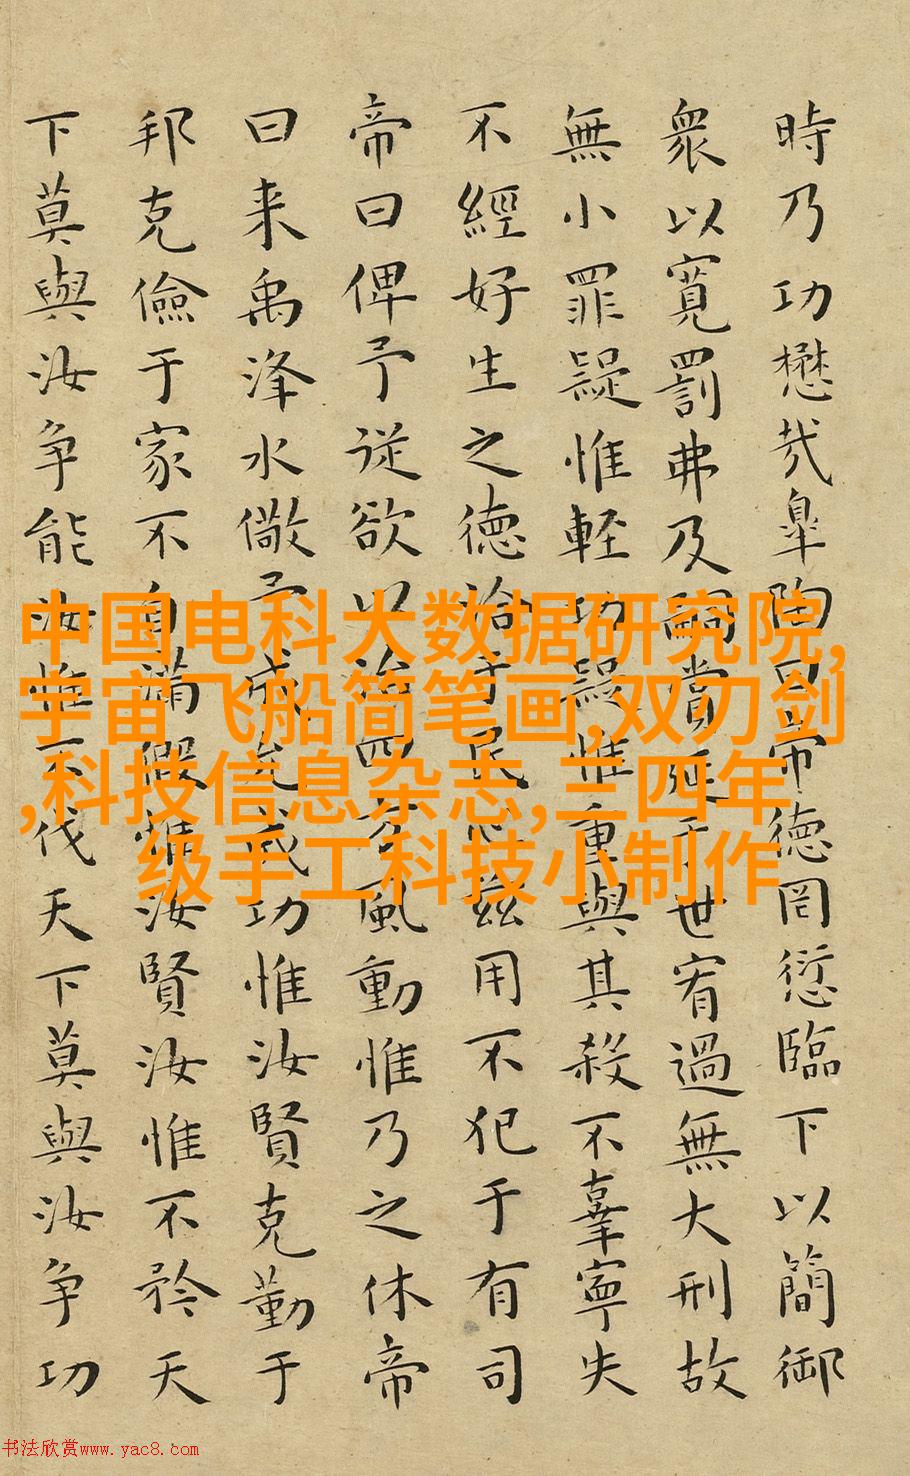 時乃功懋哉臯陶曰帝徳罔愆臨下以簡御
衆以寛罰弗及嗣賞延于世宥過無大刑故
無小罪疑惟軽功疑惟重與其殺不辜寧失
不經好生之徳洽于民心兹用不犯于有司
帝曰俾予従欲以治四方風動惟乃之休帝
曰来禹洚水儆予成允成功惟汝賢克勤于
邦克儉于家不自滿假惟汝賢汝惟不矜天
下莫與汝争能汝惟不伐天下莫與汝争功
中国电科大数据研究院,
宇宙飞船简笔画,双刃剑
,科技信息杂志,三四年
级手工科技小制作
书法欣赏www.yac8.com